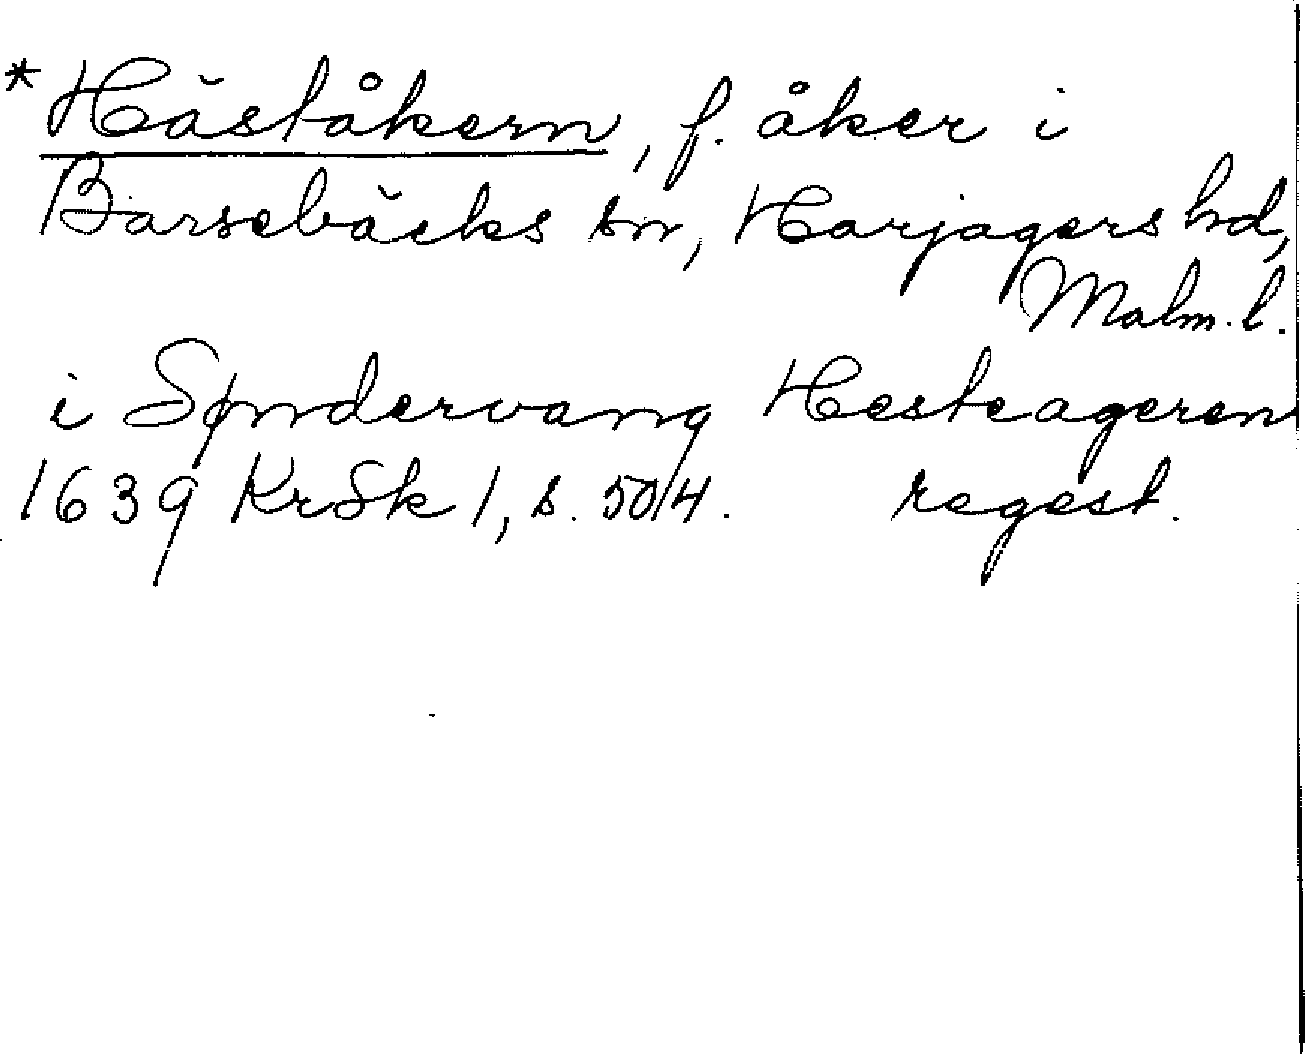 *Häståkern, f. åker i
Barsebäcks sn, Harjagers hd,
Malm. l.
i Søndervang Hesteageren
1639 KrSk 1, s. 504. regest.